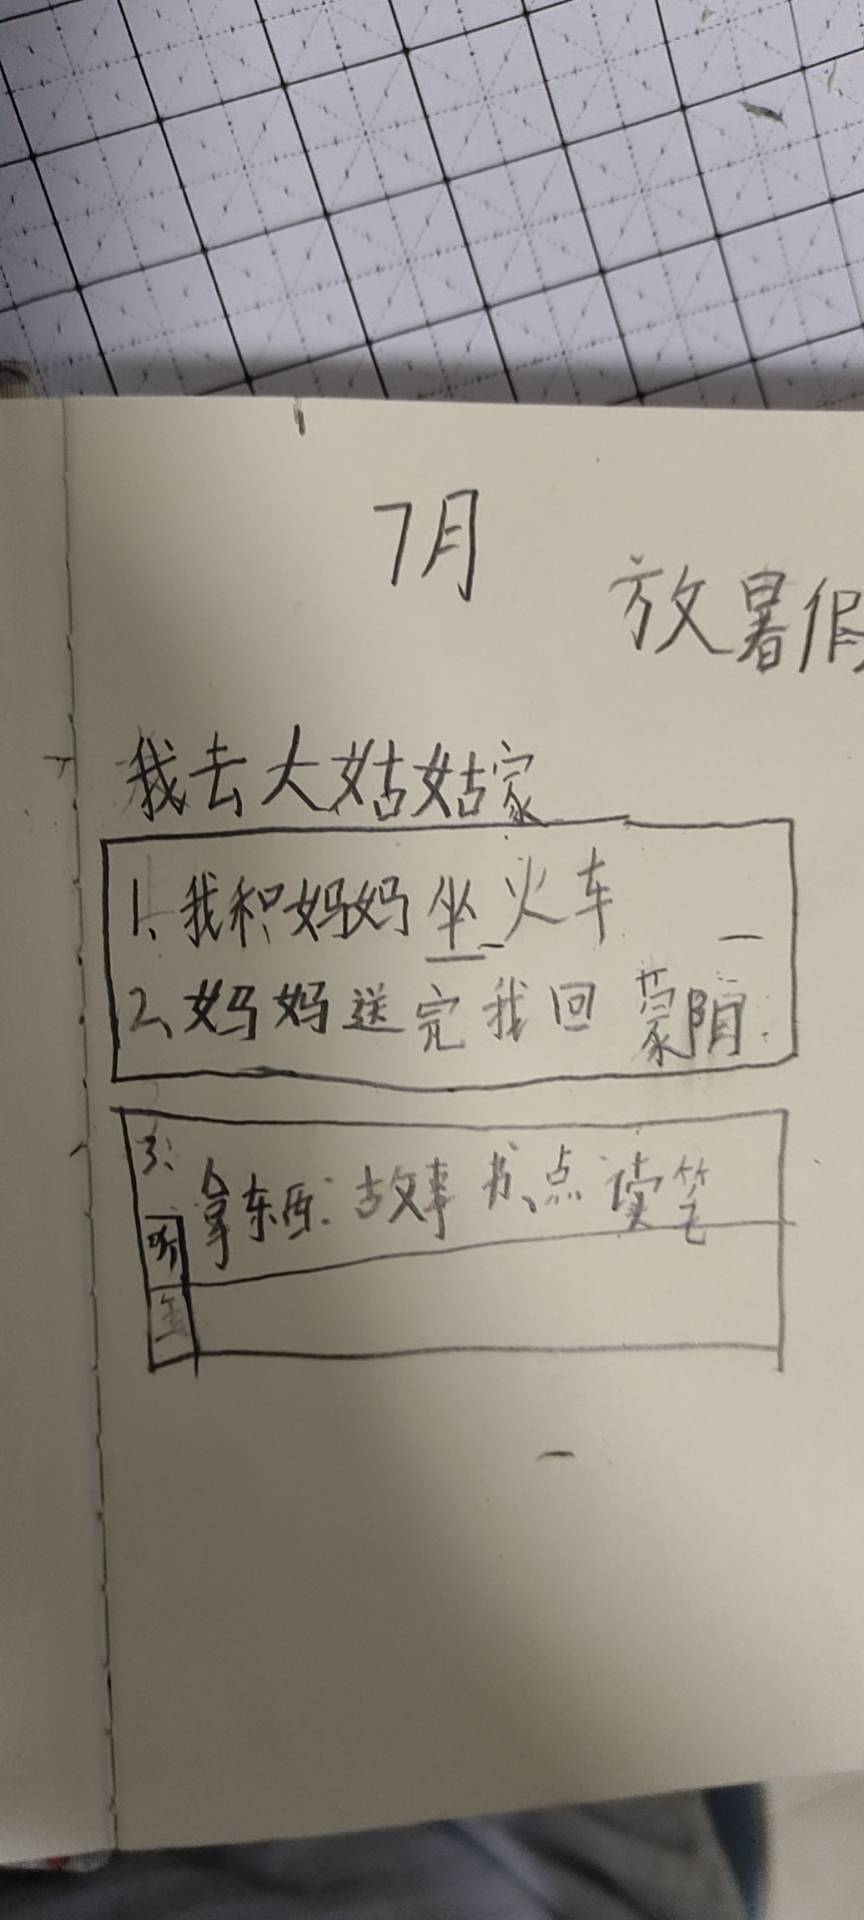 7月
放暑假
我去大姑姑家
1、我积妈妈坐火车
2、妈妈送完我回蒙阴.
3: 拿东西: 故事书、点读笔